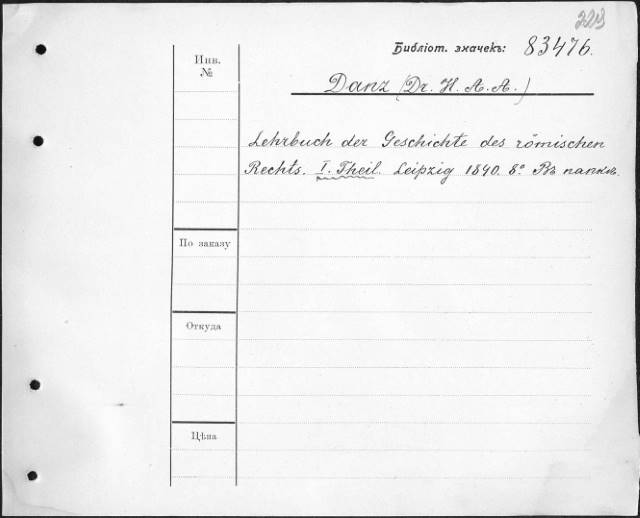 Инв.
№
Библіот. значекъ: 83476.
Danz (Dr. H. A. A.)
Lehrbuch der Geschichte des römischen
Rechts. I. Theil. Leipzig 1840. 8° Въ папкѣ.
По заказу
Откуда
Цѣна